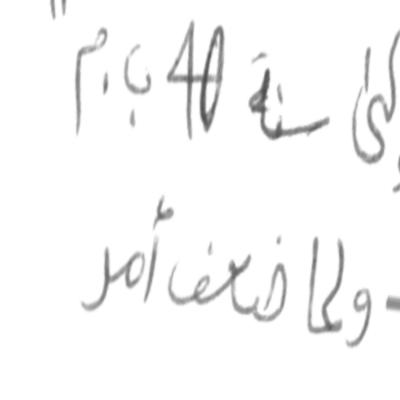 سنة 40 ب.م "
- ولما ضعف أمر